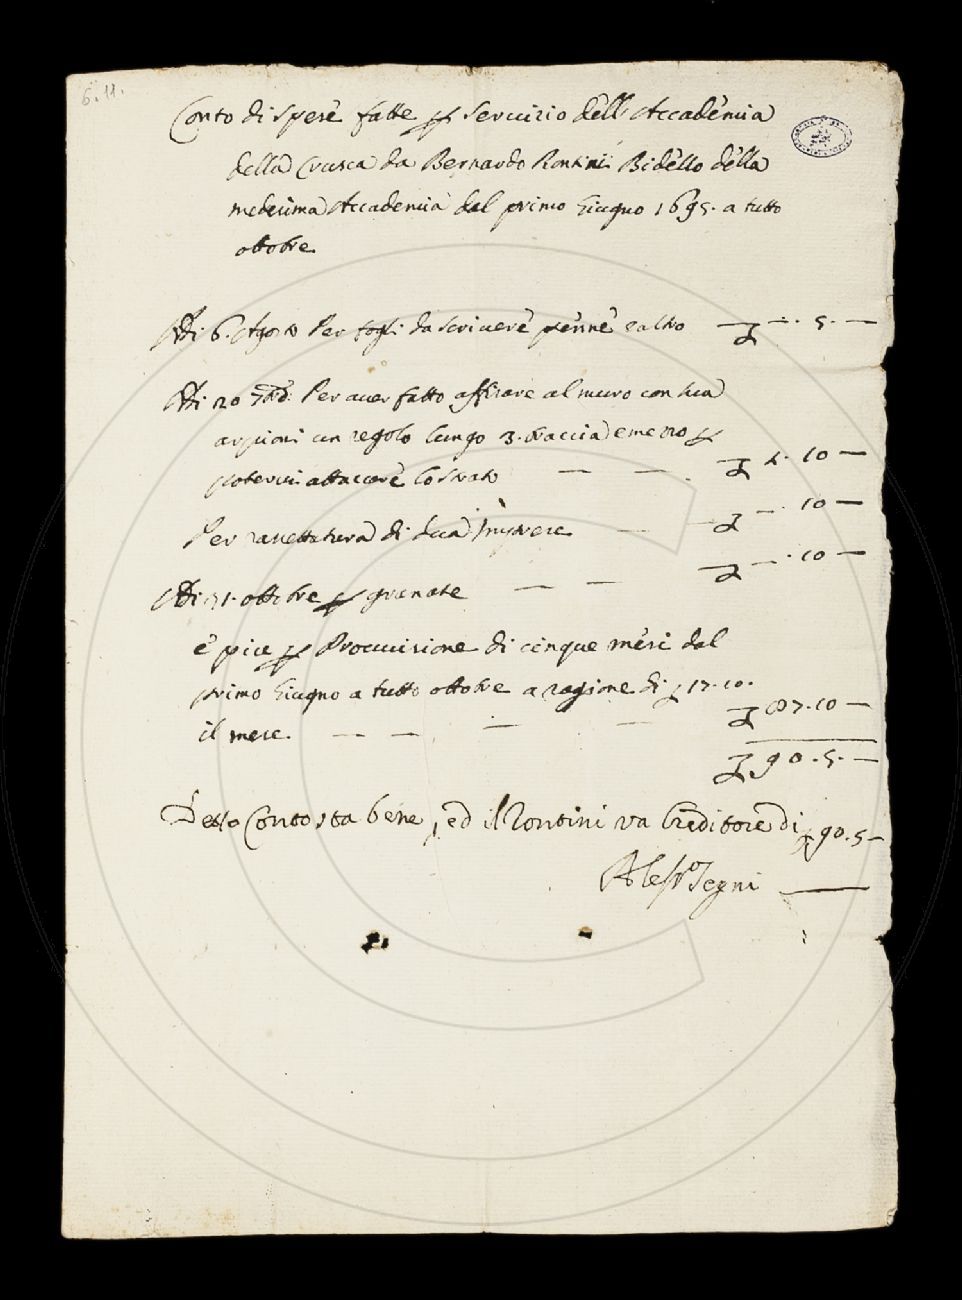 6.11.
Conto di spese fatte p servizio dell'Accademia
della Crusca da Bernardo Rontini Bidello della
medesima Accademia dal primo Giugno 1695. a tutto
ottobre
Adi 6. Agosto Per fogli da scrivere penne e altro — £ —. 5. —
Adi 20 7bre. Per aver fatto affisare al muro con sua
arpioni un regolo lungo 3. braccia e mezzo p
potervi attaccare lo strato — — £ 1. 10 —
Per rassettatura di dua — £ —. 10 —
Adi 31. ottobre p granate — — £ —. 10 —
E piu p Provvisione di cinque mesi dal
primo Giugno a tutto ottobre a ragione di £ 17. 10.
il mese. — — — — £ 87. 10 —
£ 90. 5. —
Detto Conto sta bene, ed il Rontini va Creditore di £ 90. 5 —
Aless.o Segni —